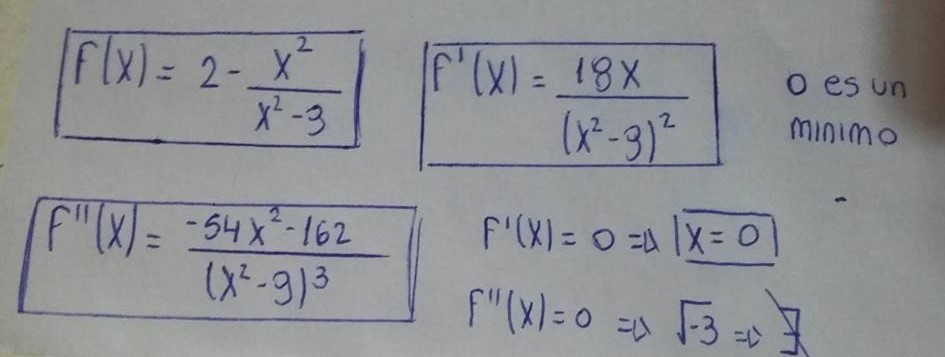 F(x) = 2 - x²/(x²-9)
F'(x) = 18x/(x²-9)²
0 es un
minimo
F''(x) = -54x²-162/(x²-9)³
F'(x) = 0 => x = 0
F''(x) = 0 => √-3 => ∄